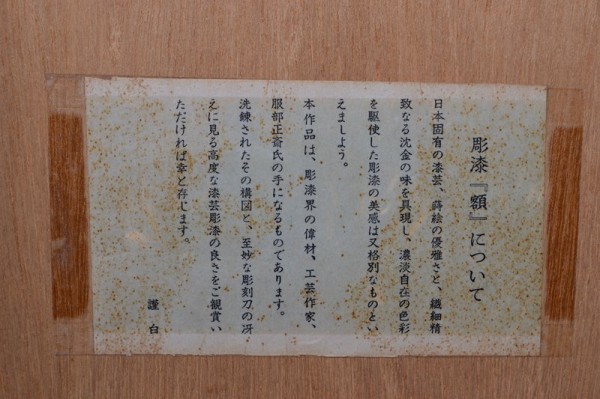 彫漆『額』について
日本固有の漆芸、蒔絵の優雅さと、繊細精
致なる沈金の味を具現し、濃淡自在の色彩
を駆使した彫漆の美感は又格別なものとい
えましよう。
本作品は、彫漆界の偉材、工芸作家、
服部正斎氏の手になるものであります。
洗錬されたその構図と、至妙な彫刻刀の冴
えに見る高度な漆芸彫漆の良さをご観賞い
ただければ幸と存じます。
謹白